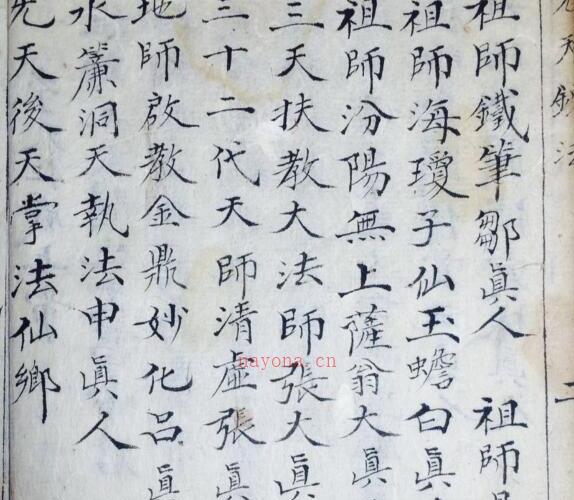 天 法 二
祖師鐵筆鄒眞人 祖師
祖師海瓊子仙玉蟾白眞
祖師汾陽無上薩翁大眞
三天扶教大法師張大眞
三十二代天師清虛張眞
地師啟教金鼎妙化呂眞
水簾洞天執法申眞人
先天後天掌法仙鄉
nayona.cn